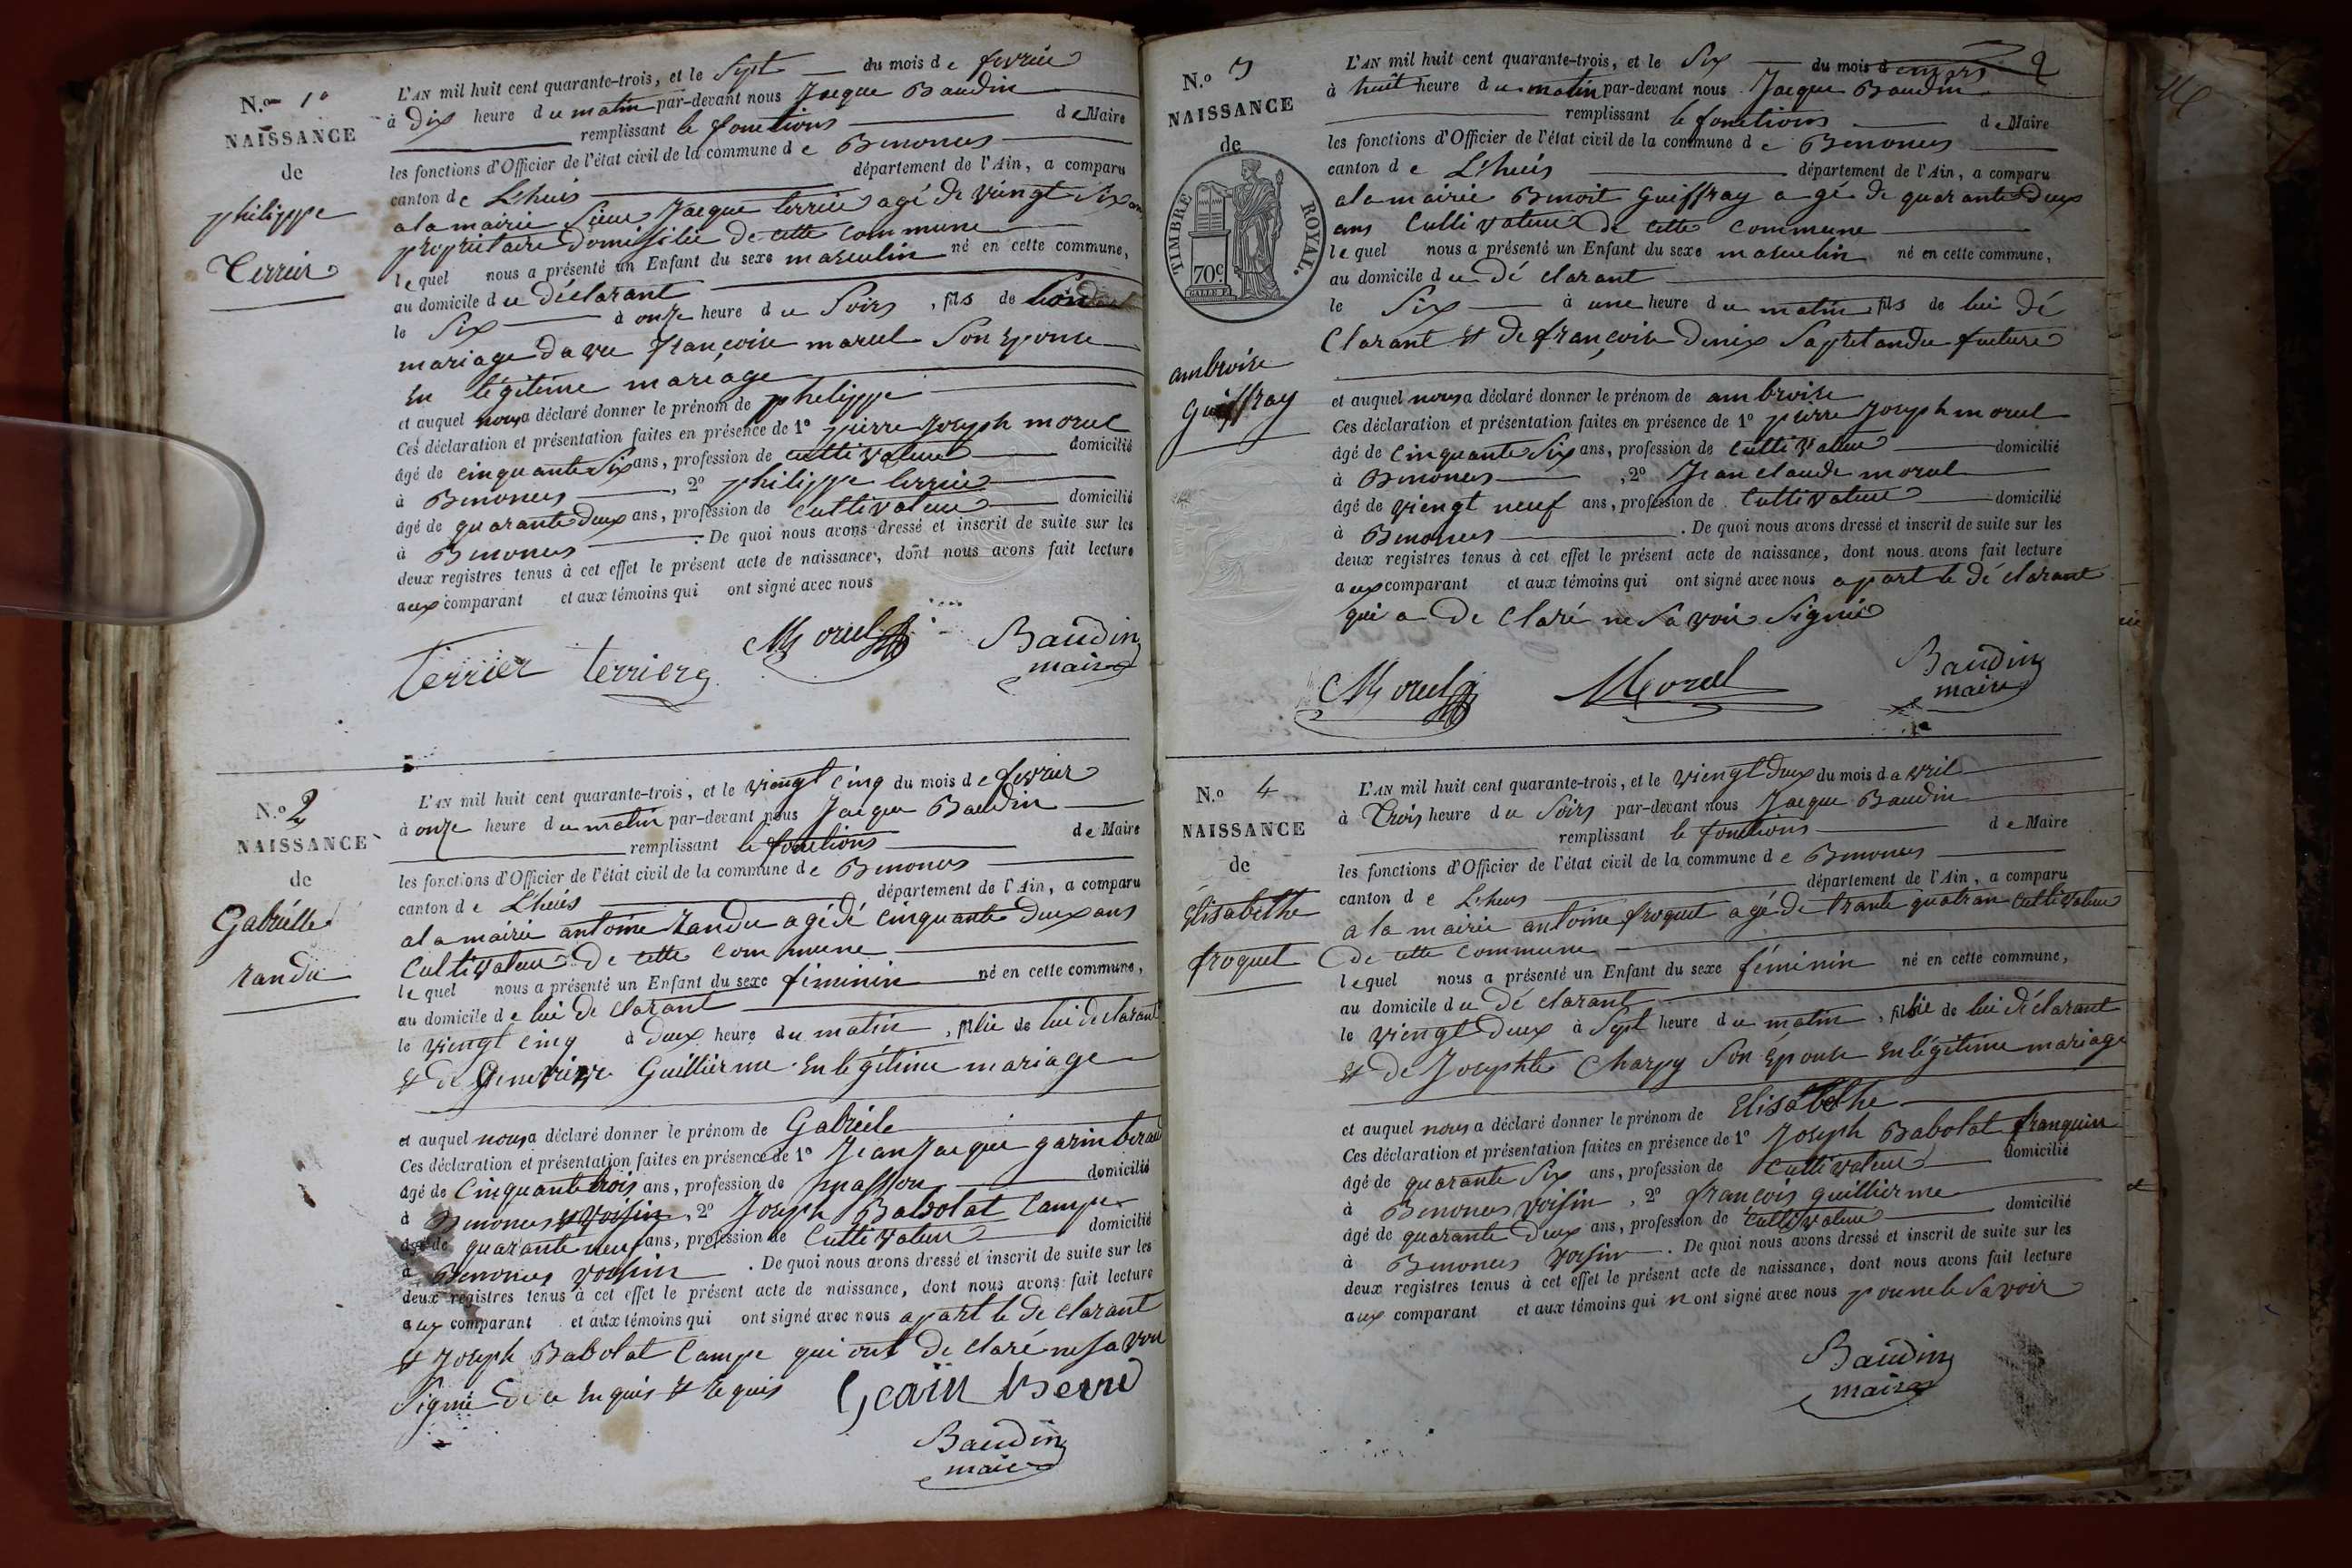 N.o 1o
NAISSANCE
de
philippe
Terrier
L'AN mil huit cent quarante-trois, et le Sept du mois de fevrier
à Dix heure du matin par-devant nous Jacque Baudin
remplissant le fonctions de Maire
les fonctions d'Officier de l'état civil de la commune de Benonces
canton de Lhuis département de l'Ain, a comparu
a la mairie Sieur Jacque terrier agé de vingt Six ans
proprietaire domissilié de cette commune
lequel nous a présenté un Enfant du sexe masculin né en cette commune,
au domicile du déclarant
le Six à onze heure du Soirs, fils de
mariage davec françoise morel Son Epouse
En légitime mariage
et auquel nous a déclaré donner le prénom de philippe
Ces déclaration et présentation faites en présence de 1o pierre Joseph morel
âgé de cinquante Six ans, profession de cultivateur domicilié
à Benonces, 2o philippe terrier
âgé de quarante deux ans, profession de cultivateur domicilié
à Benonces. De quoi nous avons dressé et inscrit de suite sur les
deux registres tenus à cet effet le présent acte de naissance, dont nous avons fait lecture
aux comparant et aux témoins qui ont signé avec nous
Terrier terrier Morel Baudin
maire
N.o 2
NAISSANCE
de
Gabrielle
randu
L'AN mil huit cent quarante-trois, et le viengt cinq du mois de fevrier
à onze heure du matin par-devant nous Jacque Baudin
remplissant le fonctions de Maire
les fonctions d'Officier de l'état civil de la commune de Benonces
canton de Lhuis département de l'Ain, a comparu
a la mairie antoine randu agé dé cinquante Deux ans
Cultivateur de cette commune
lequel nous a présenté un Enfant du sexe féminin né en cette commune,
au domicile de lui de clarant
le viengt cinq à deux heure du matin, fille de lui declarant
Et de Genevieve Guillierme En légitime mariage
et auquel nous a déclaré donner le prénom de Gabriele
Ces déclaration et présentation faites en présence de 1o Jean Jacque garin beraud
âgé de Cinquante trois ans, profession de masson domicilié
à Benonces et voisin, 2o Joseph Babolat Campe
âgé de quarante neuf ans, profession de Cultivateur domicilié
à Benonces voisin. De quoi nous avons dressé et inscrit de suite sur les
deux registres tenus à cet effet le présent acte de naissance, dont nous avons fait lecture
aux comparant et aux témoins qui ont signé avec nous apart le de clarant
Et Joseph Babolat Campe qui ont de claré ne Savoir
Signié de ce Enquis et Requis
Baudin
maire
N.o 3
NAISSANCE
de
TIMBRE ROYAL.
70c
ambroise
Guiffray
2
L'AN mil huit cent quarante-trois, et le Six du mois de mars
à huit heure du matin par-devant nous Jacque Baudin
remplissant le fonctions de Maire
les fonctions d'Officier de l'état civil de la commune de Benonces
canton de Lhuis département de l'Ain, a comparu
a la mairie Benoit Guiffray a gé de quarante Deux
ans Cultivateur de cette Commune
lequel nous a présenté un Enfant du sexe masculin né en cette commune,
au domicile du dé clarant
le Six à une heure du matin fils de lui dé
Clarant Et de françoise Denix Sa pretandue future
et auquel nous a déclaré donner le prénom de ambroise
Ces déclaration et présentation faites en présence de 1o pierre Joseph morel
âgé de Cinquante Six ans, profession de Cultivateur domicilié
à Benonces, 2o Jean claude morel
âgé de viengt neuf ans, profession de Cultivateur domicilié
à Benonces. De quoi nous avons dressé et inscrit de suite sur les
deux registres tenus à cet effet le présent acte de naissance, dont nous avons fait lecture
aux comparant et aux témoins qui ont signé avec nous apart le dé clarant
qui a De Claré ne Sa voir Signié
Morel Morel Baudin
maire
N.o 4
NAISSANCE
de
Elisabethe
froquet
L'AN mil huit cent quarante-trois, et le viengt Deux du mois d avril
à Trois heure du Soirs par-devant nous Jacque Baudin
remplissant le fonctions de Maire
les fonctions d'Officier de l'état civil de la commune de Benonces
canton de Lhuis département de l'Ain, a comparu
a la mairie antoine froquet agé de trante quatran Cultivateur
de cette Commune
lequel nous a présenté un Enfant du sexe féminin né en cette commune,
au domicile du dé clarant
le viengt Deux à Sept heure du matin, fille de lui déclarant
Et de Josephte Charpy Son Épouse En légitime mariage
et auquel nous a déclaré donner le prénom de Elisabethe
Ces déclaration et présentation faites en présence de 1o Joseph Babolat franquin
âgé de quarante Six ans, profession de Cultivateur domicilié
à Benonces voisin, 2o françois guillierme
âgé de quarante Deux ans, profession de Cultivateur domicilié
à Benonces voisin. De quoi nous avons dressé et inscrit de suite sur les
deux registres tenus à cet effet le présent acte de naissance, dont nous avons fait lecture
aux comparant et aux témoins qui n ont signé avec nous pour ne le Savoir
Baudin
maire